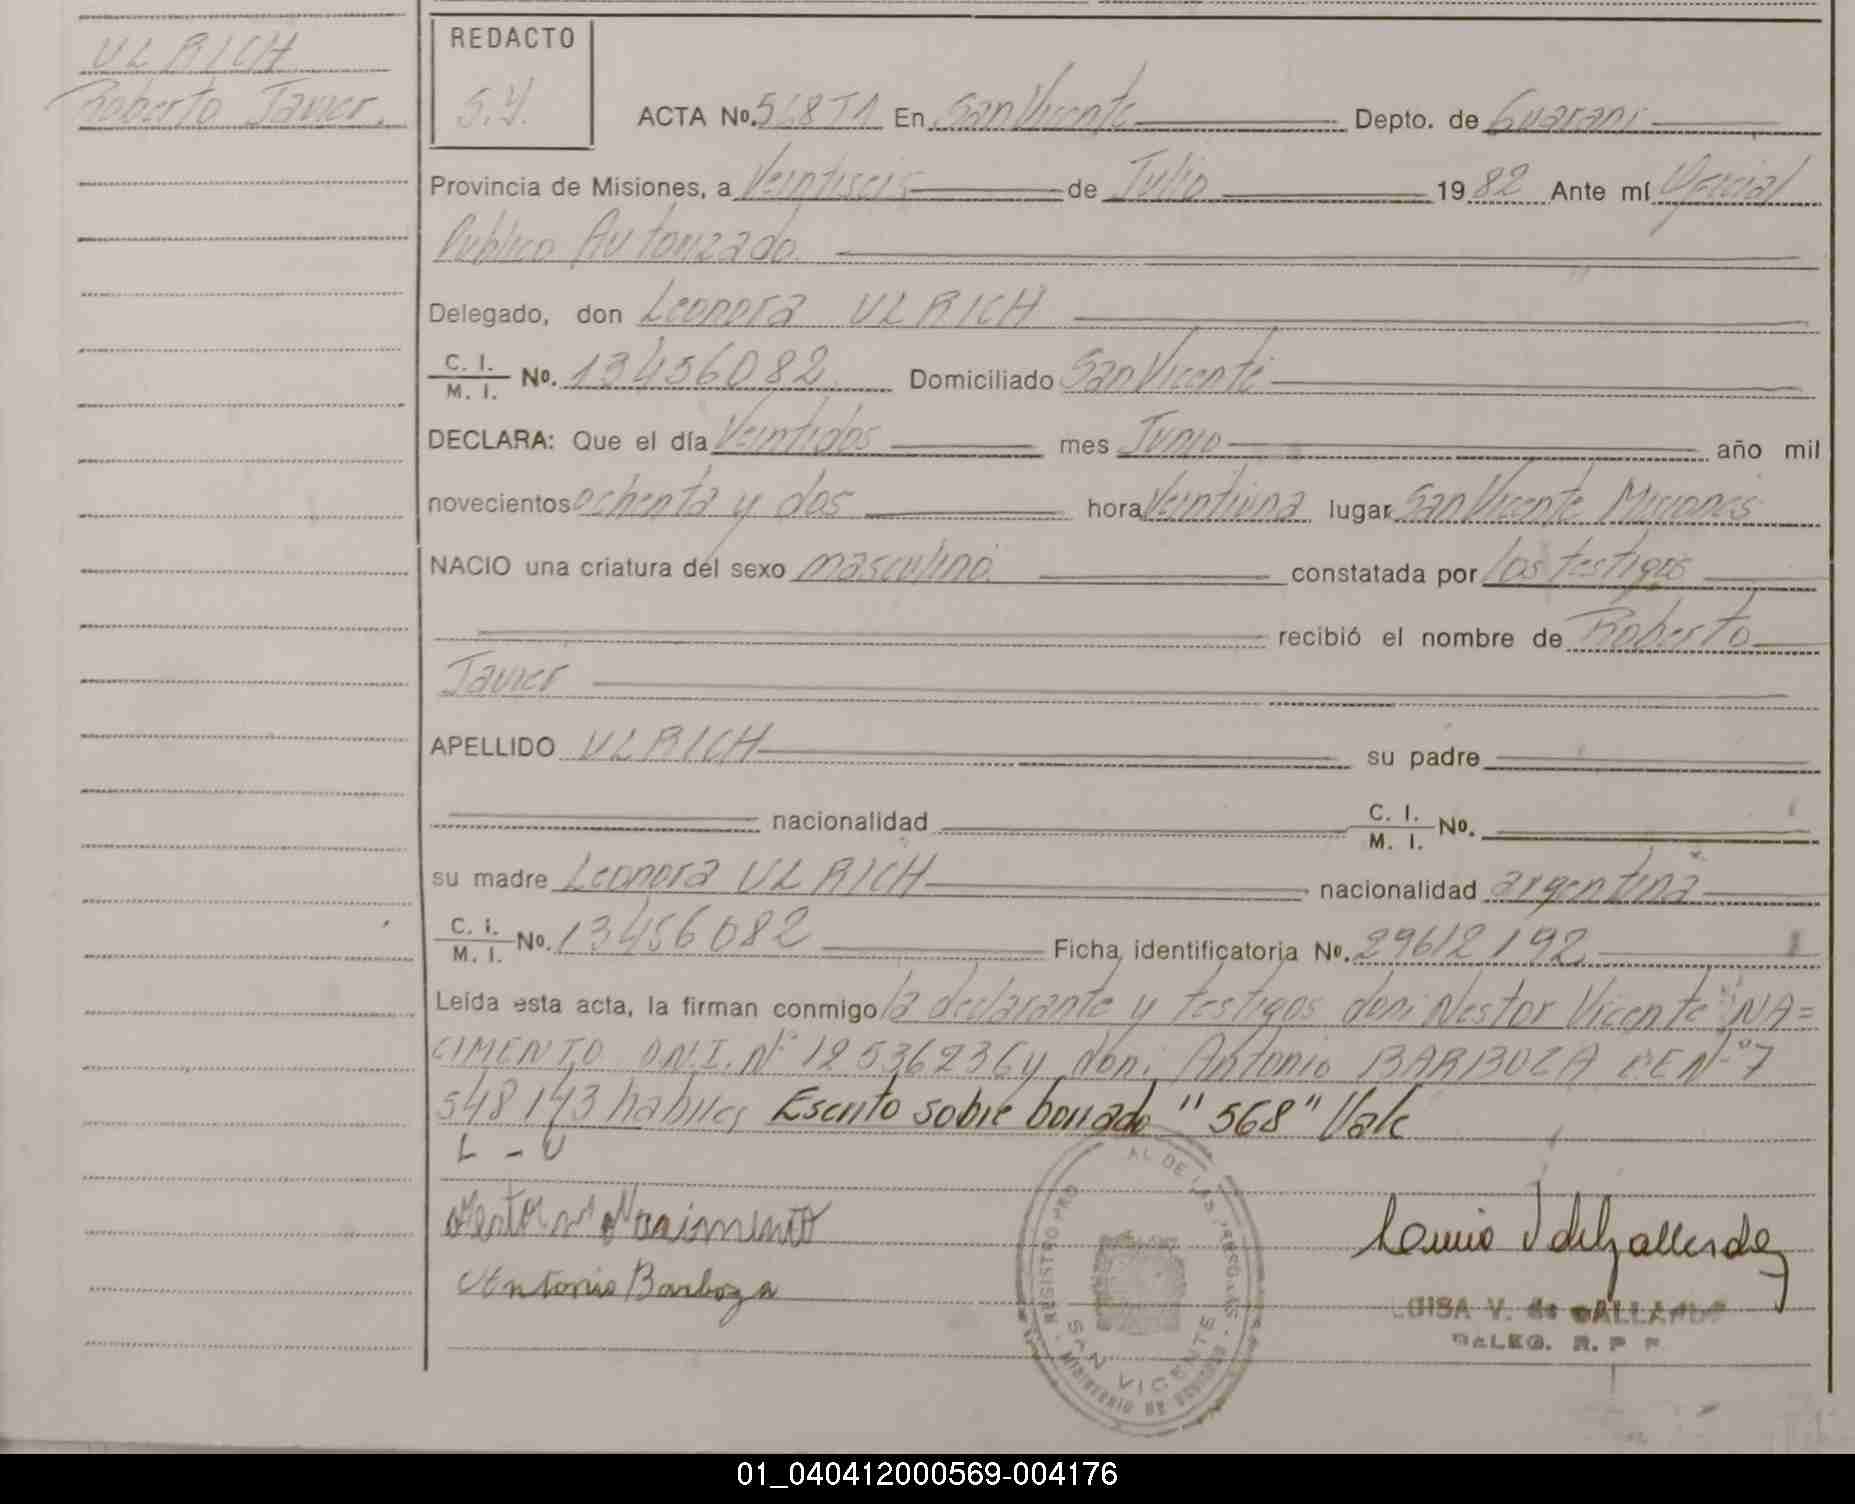 ULRICH
Roberto Javier.
REDACTO
S.V.
ACTA No. 568 T1 En San Vicente Depto. de Guarani
Provincia de Misiones, a Veintiseis de Julio 1982 Ante mí Oficial
Publico Autorizado
Delegado, don Leonora ULRICH
C. I. / M. I. No. 13456082 Domiciliado San Vicente
DECLARA: Que el día Veintidos mes Junio año mil
novecientos ochenta y dos hora Veintiuna lugar San Vicente Misiones
NACIO una criatura del sexo masculino constatada por los testigos
recibió el nombre de Roberto
Javier
APELLIDO ULRICH su padre
nacionalidad C. I. / M. I. No.
su madre Leonora ULRICH nacionalidad argentina
C. I. / M. I. No. 13456082 Ficha identificatoria No. 29612192
Leída esta acta, la firman conmigo la declarante y testigos don: Nestor Vicente NA=
CIMENTO D.N.I. Nº 12536236 y don: Antonio BARBOZA Nº 7
548143 habiles Escrito sobre borrado "568" Vale
L - U
Nestor Nacimento
Antonio Barboza
REGISTRO PRO AL DE LAS PERSONAS
SAN VICENTE
MINISTERIO DE GOBIERNO
LUISA V. de GALLARDO
DELEG. R. P. P.
01_040412000569-004176